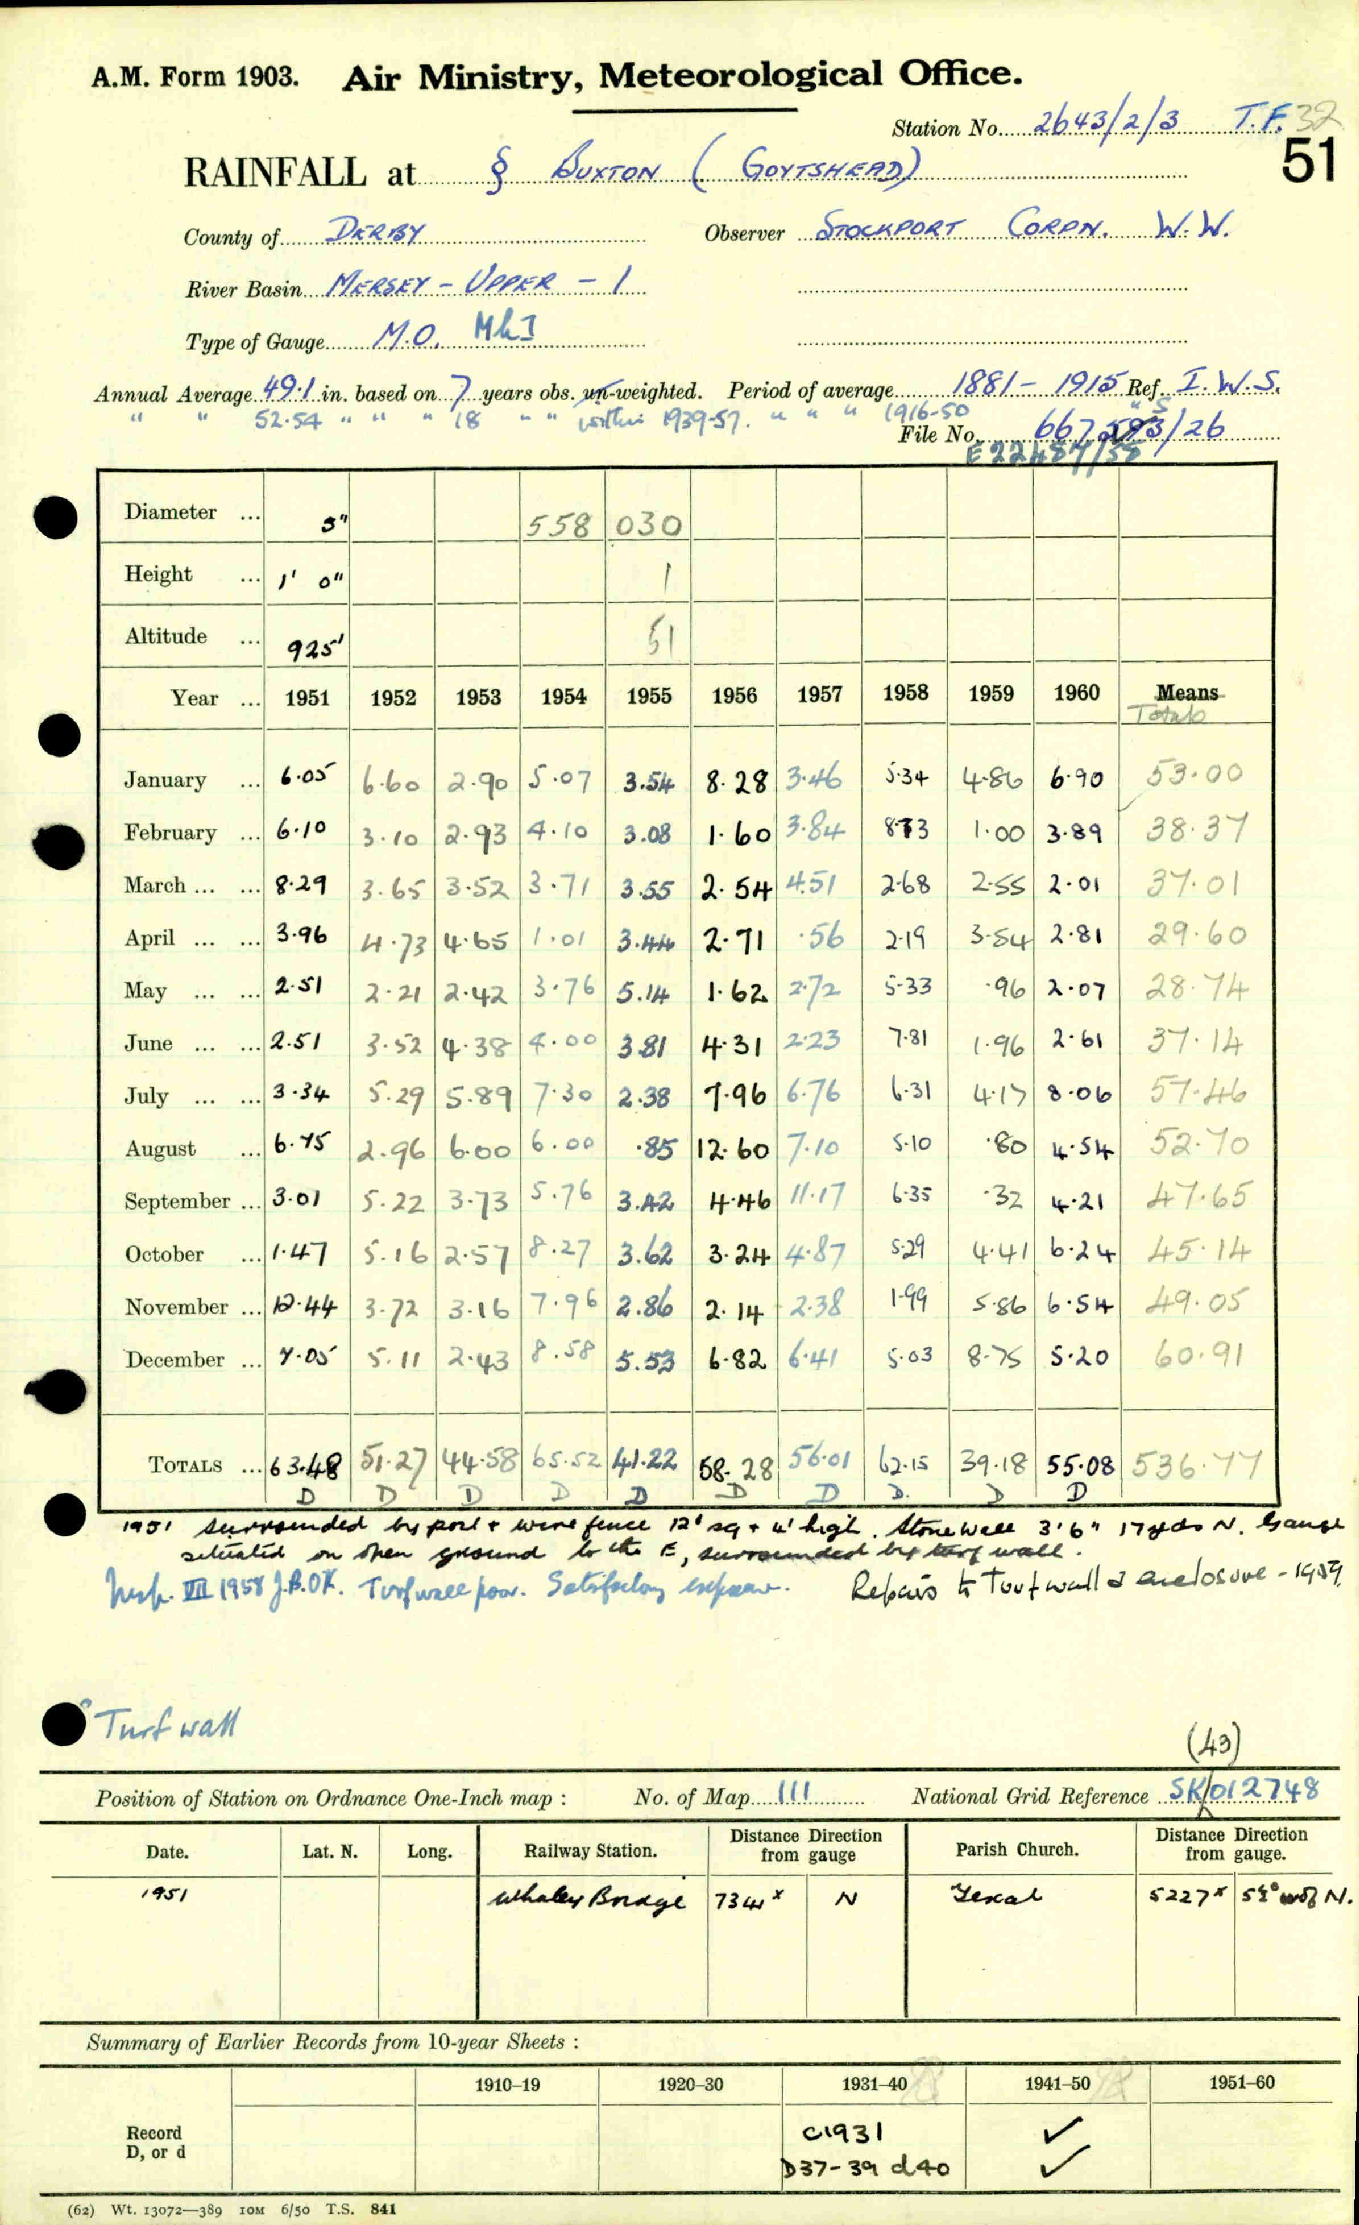 A.M. Form 1903. Air Ministry, Meteorological Office.
Station No. 2643/2/3 T.F. 32
51
RAINFALL at § BUXTON (GOYTSHEAD)
County of DERBY Observer STOCKPORT CORPN. W.W.
River Basin MERSEY - UPPER - 1
Type of Gauge M.O. Mk I
Annual Average 49.1 in. based on 7 years obs. un-weighted. Period of average 1881 - 1915 Ref. I.W.S.
" " 52.54 " " " 18 " " within 1939-57. " " " 1916-50 " S
File No. 667 /26
E 22487/58
Diameter ... 5" 558 030
Height ... 1' 0" 1
Altitude ... 925' 51
Year ... 1951 1952 1953 1954 1955 1956 1957 1958 1959 1960 Means
Totals
January ... 6.05 6.60 2.90 5.07 3.54 8.28 3.46 5.34 4.86 6.90 53.00
February ... 6.10 3.10 2.93 4.10 3.08 1.60 3.84 8.73 1.00 3.89 38.37
March ... ... 8.29 3.65 3.52 3.71 3.55 2.54 4.51 2.68 2.55 2.01 37.01
April ... ... 3.96 4.73 4.65 1.01 3.44 2.71 .56 2.19 3.54 2.81 29.60
May ... ... 2.51 2.21 2.42 3.76 5.14 1.62 2.72 5.33 .96 2.07 28.74
June ... ... 2.51 3.52 4.38 4.00 3.81 4.31 2.23 7.81 1.96 2.61 37.14
July ... ... 3.34 5.29 5.89 7.30 2.38 7.96 6.76 6.31 4.17 8.06 57.46
August ... 6.75 2.96 6.00 6.00 .85 12.60 7.10 5.10 .80 4.54 52.70
September ... 3.01 5.22 3.73 5.76 3.42 4.46 11.17 6.35 .32 4.21 47.65
October ... 1.47 5.16 2.57 8.27 3.62 3.24 4.87 5.29 4.41 6.24 45.14
November ... 12.44 3.72 3.16 7.96 2.86 2.14 2.38 1.99 5.86 6.54 49.05
December ... 7.05 5.11 2.43 8.58 5.53 6.82 6.41 5.03 8.75 5.20 60.91
TOTALS ... 63.48 51.27 44.58 65.52 41.22 58.28 56.01 62.15 39.18 55.08 536.77
D D D D D D D D. D D
1951 Surrounded by post + wire fence 12' sq + 4' high. Stone wall 3'6" 17 yds N. Gauge
situated on open ground to the E, surrounded by turf wall.
Insp. VII 1958 J.B.OK. Turf wall poor. Satisfactory exposure. Repairs to Turf wall & enclosure - 1959.
Turf wall
(43)
Position of Station on Ordnance One-Inch map : No. of Map 111 National Grid Reference SK/012748
Date. Lat. N. Long. Railway Station. Distance Direction from gauge Parish Church. Distance Direction from gauge.
1951 Whaley Bridge 734 x N Taxal 5227 x 5½° W of N.
Summary of Earlier Records from 10-year Sheets :
1910-19 1920-30 1931-40 1941-50 1951-60
Record C1931 ✓
D, or d D37-39 d40 ✓
(62) Wt. 13072—389 10M 6/50 T.S. 841